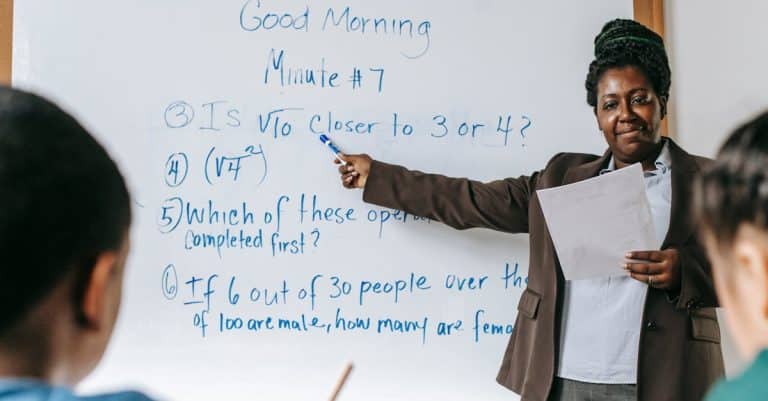 Good Morning
Minute #7
③ Is √10 closer to 3 or 4?
④ (√4²)
⑤ Which of these
completed first?
⑥ If 6 out of 30 people over the
of 100 are male, how many are